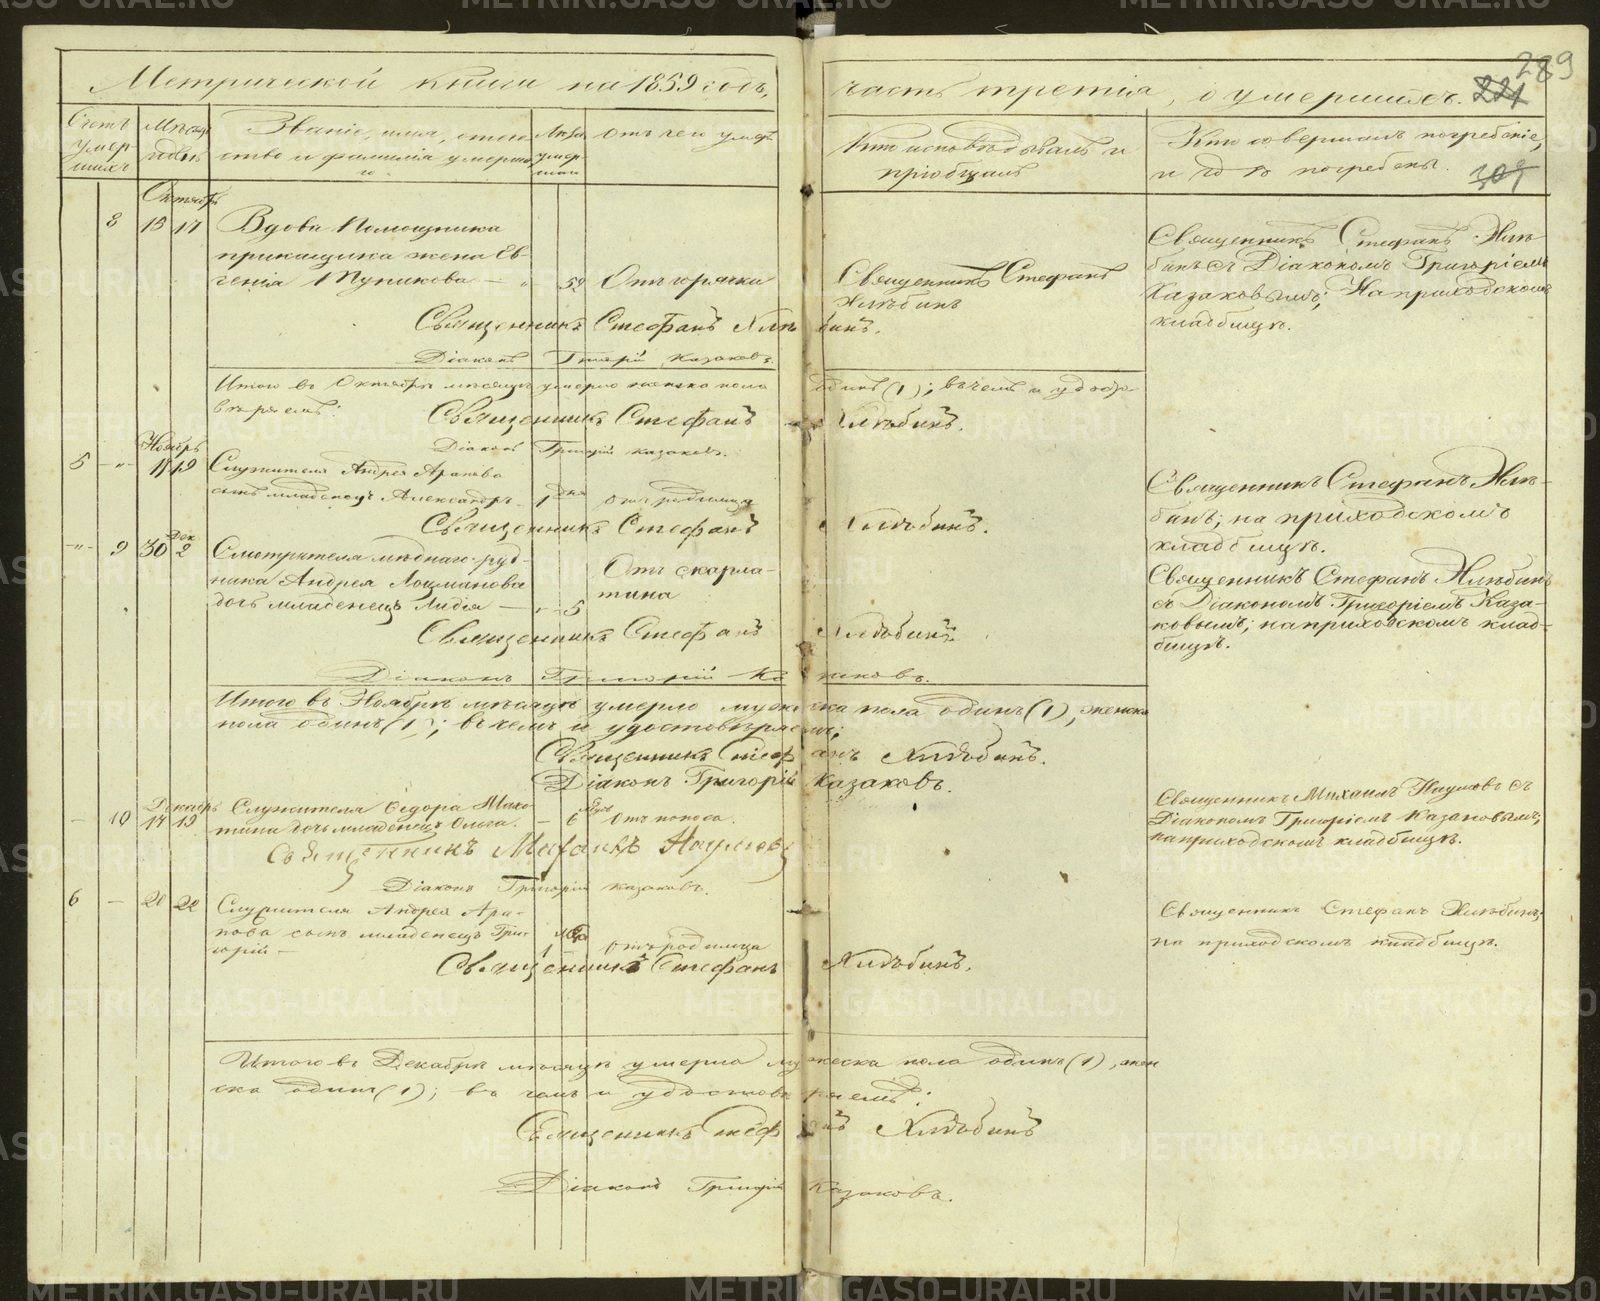 Метрической книги на 1859 годъ,
часть третія, о умершихъ.
289
221
Счетъ умер-шихъ
Мѣсяцъ и день
Званіе, имя, отче-
ство и фамилія умерша-
го
Лѣта умер-шаго
Отъ чего умеръ
Кто исповѣдывалъ и
пріобщалъ
Кто совершалъ погребеніе,
и гдѣ погребены.
Октябрь
8 15 17 Вдова Помощника
прикащика жена Ев-
генія
52 Отъ горячки
Священникъ Стефанъ
Хлѣбинъ
Священникъ Стефанъ Хлѣ-
бинъ съ Діакономъ Григоріемъ
Казаковымъ; На приходскомъ
кладбищѣ.
Священникъ Стефанъ Хлѣбинъ.
Діаконъ Григорій Казаковъ.
Итого въ Октябрѣ мѣсяцѣ умерло женска пола одинъ (1); въ чемъ и удостовѣ-
вѣряемъ:
Священникъ Стефанъ Хлѣбинъ.
Діаконъ Григорій Казаковъ.
Ноябрь
5 17 19 Служителя Андрея Арапова
сынъ младенецъ Александръ 1 дня отъ родимца
Священникъ Стефанъ Хлѣ-
бинъ; на приходскомъ
кладбищѣ.
Священникъ Стефанъ Хлѣбинъ.
9 30 Дек. 2 Смотрителя мѣднаго руд-
ника Андрея Лоцманова
дочь младенецъ Лидія 5
Отъ скарла-
тина
Священникъ Стефанъ Хлѣбинъ
съ Діакономъ Григоріемъ Каза-
ковымъ; на приходскомъ клад-
бищѣ.
Священникъ Стефанъ Хлѣбинъ.
Діаконъ Григорій Казаковъ.
Итого въ Ноябрѣ мѣсяцѣ умерло мужеска пола одинъ (1), женска
пола одинъ (1); въ чемъ и удостовѣряемъ;
Священникъ Стефанъ Хлѣбинъ.
Діаконъ Григорій Казаковъ.
Декабрь
10 17 19 Служителя Ѳедора
дочь младенецъ Ольга. 6 отъ поноса.
Священникъ Михаилъ Наумовъ съ
Діакономъ Григоріемъ Казаковымъ;
на приходскомъ кладбищѣ.
Священникъ Михаилъ Наумовъ
Діаконъ Григорій Казаковъ.
6 20 22 Служителя Андрея Ара-
пова сынъ младенецъ Гри-
горій 1 отъ родимца
Священникъ Стефанъ Хлѣбинъ;
на приходскомъ кладбищѣ.
Священникъ Стефанъ Хлѣбинъ.
Итого въ Декабрѣ мѣсяцѣ умерло мужеска пола одинъ (1), жен
ска одинъ (1); въ чемъ и удостовѣряемъ:
Священникъ Стефанъ Хлѣбинъ
Діаконъ Григорій Казаковъ.
METRIKI.GASO-URAL.RU